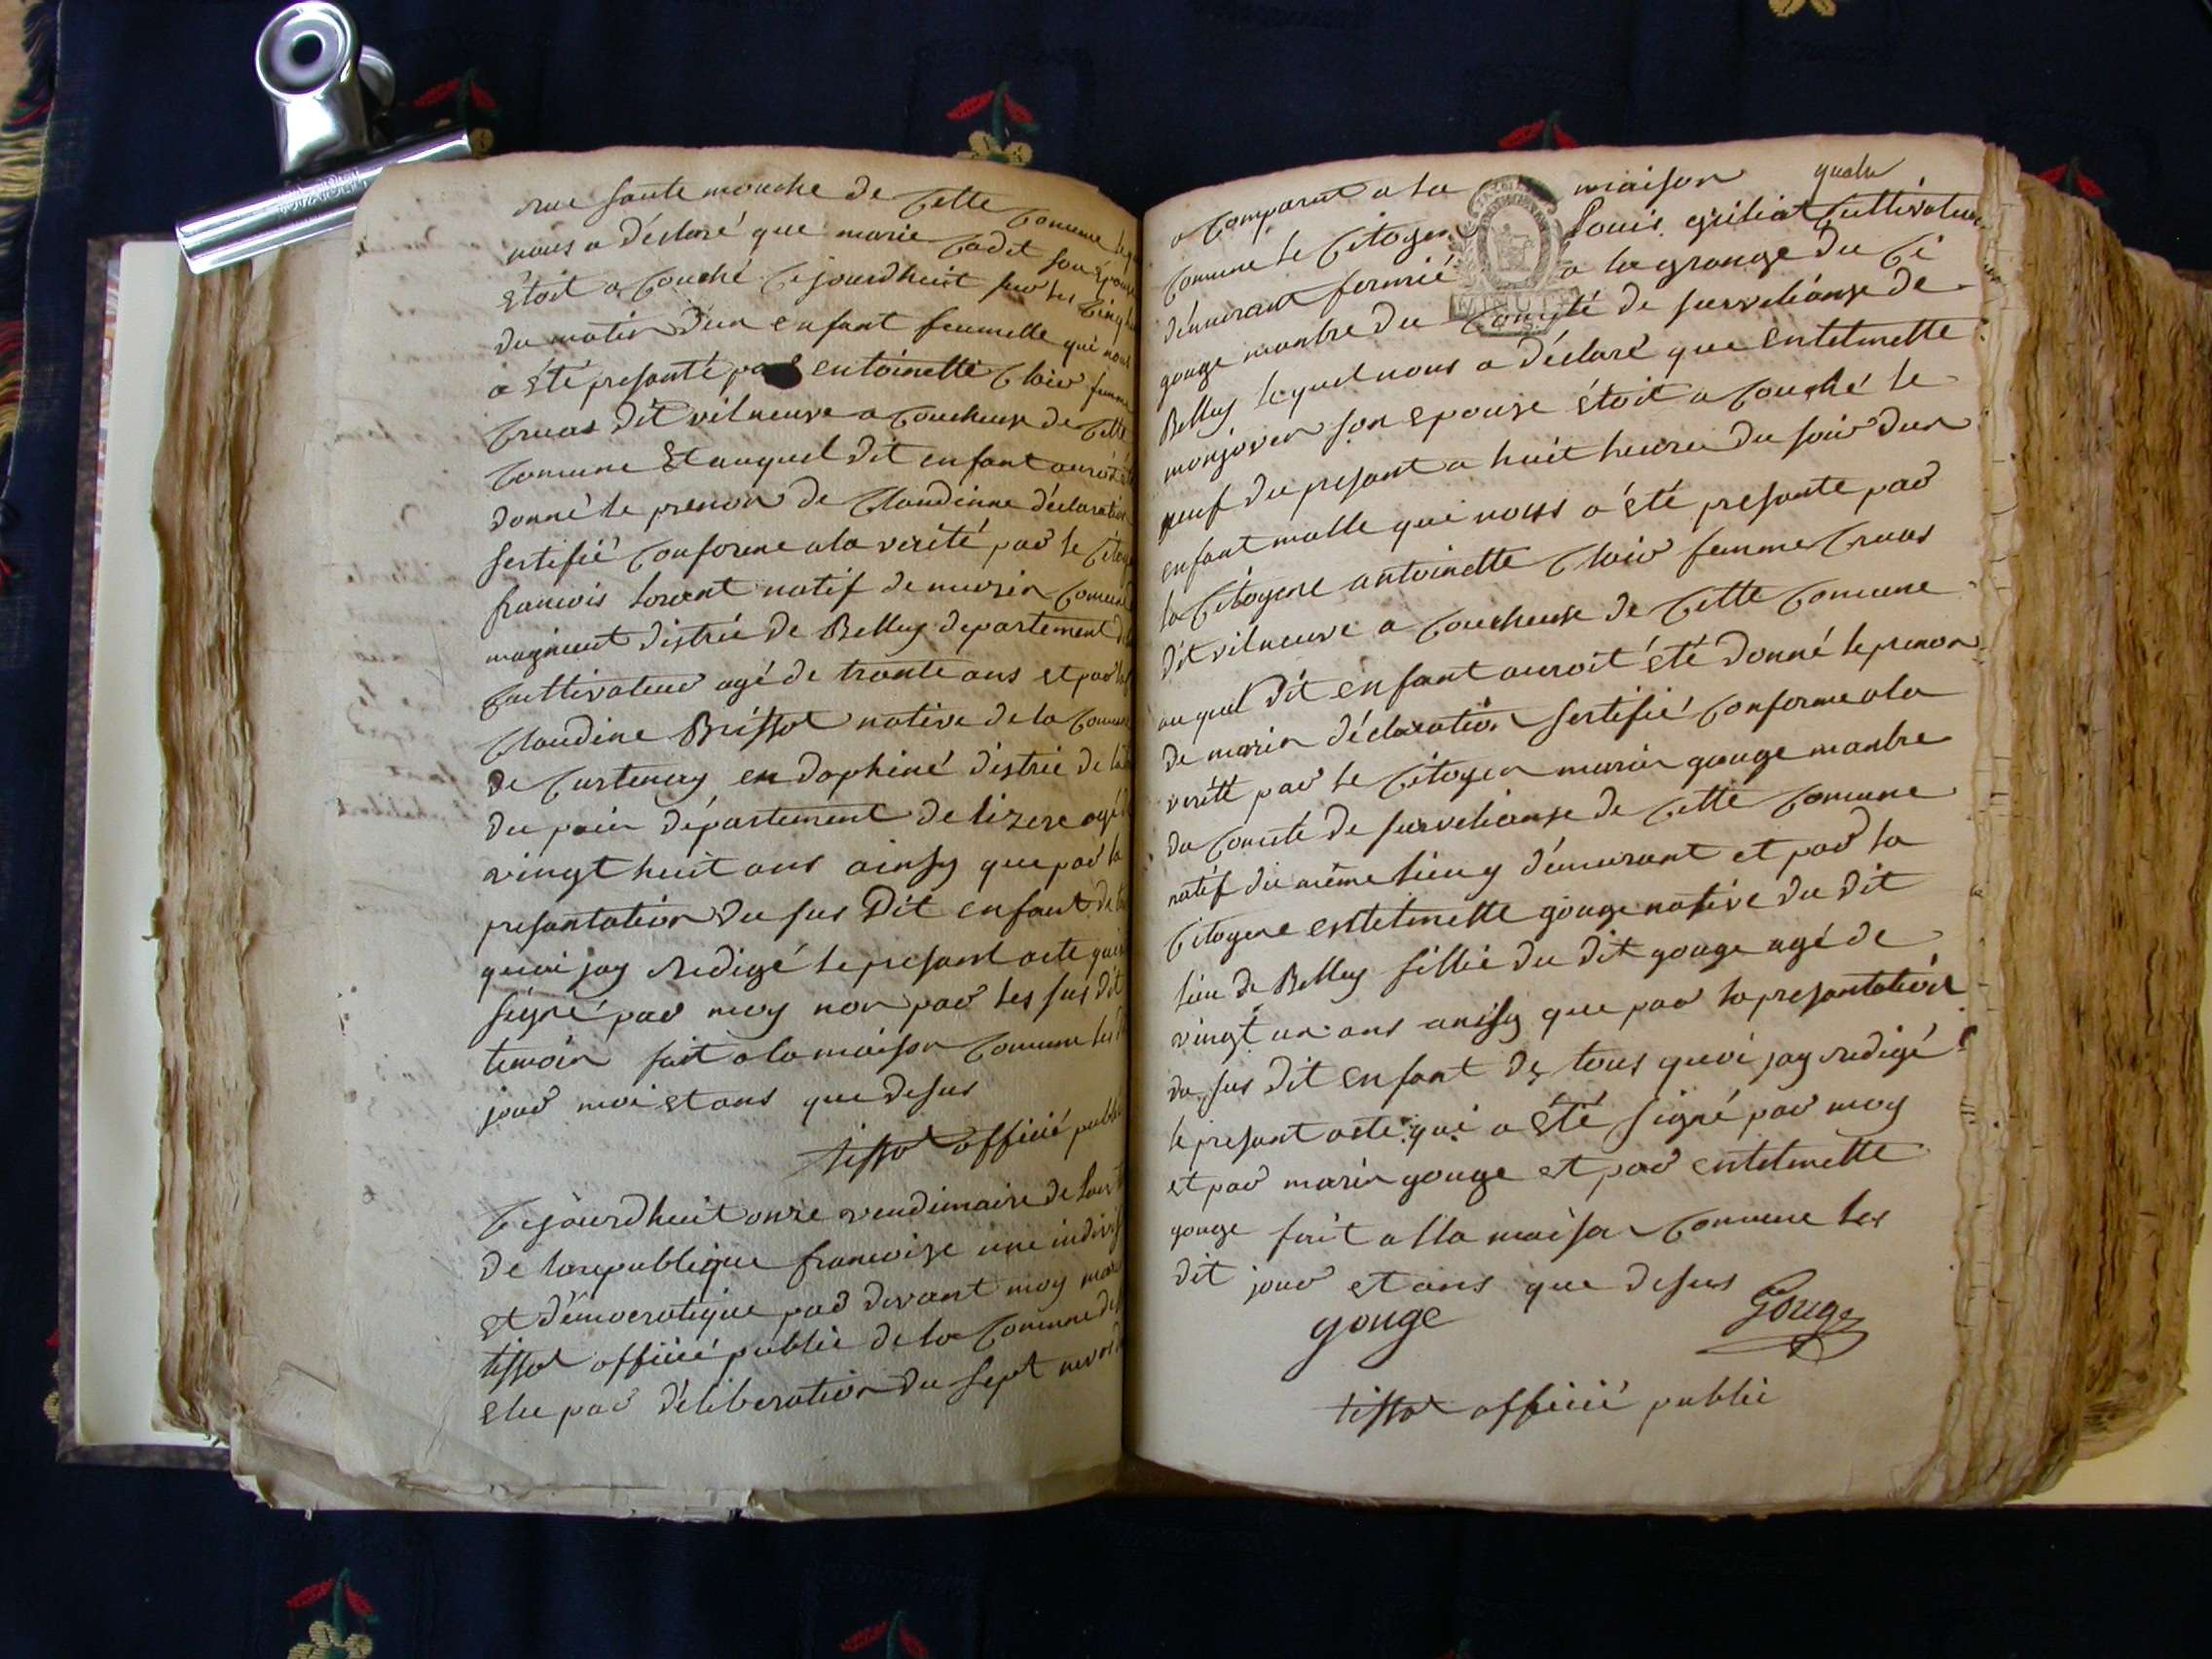 rue sante mouche de cette comune
nous a déclaré que marie cadet son épouse
étoit a couché cejourdhuit sur les cinq
du matin d'un enfant feumelle qui nous
a été presanté par entoinette Cloiw femme
cruas dit vilneuve a coucheuse de cette
comune Et auquel dit enfant auroit
donné le prenon de Claudinne déclaration
sertifié conforme ala verité par le
francois lorant natif de muzin comune
magnieut distric de Belley departement
cultivateur agé de trante ans et par
Claudine Brissot native de la
de Curtenay en dophiné distric de la
du pain département de lizere agé
vingt huit ans ainsy que par la
presantation du sus Dit enfant de
quoi jay redigé le presant acte qui
signé par moy non par les sus dit
temoin fait ala maison comune
jour moi et ans que desus
tissot officié public
Cejourdhuit onze vendimaire de
de larepublique francoise une indivis
et démocratique par devant moy
tissot officié public de la comune
elu par déliberation du sept
quatre
a comparut a la maison
comune le citoyen Louis guiliot cultivateur
démurant fermié a la grange du ci
gouge manbre du comité de surveilianse de
Belley lequel nous a déclaré que entelmette
monjoven son epouse étoit a couché le
neuf du presant a huit heure du soir d'un
enfant malle qui nous a été presante par
la citoyene antoinette Cloiw femme cruas
dit vilneuve a coucheuse de cette comune
auquel Dit enfant auroit été donné le prenon
de marin déclaration sertifié conforme ala
veritt par le citoyen marin gouge manbre
du comité de surveilianse de cette comune
natif du même lieu y démurant et par la
citoyene entelmette gouge native du dit
lieu de Belley fillie du dit gouge agé de
vingt un ans ainsy que par la presantation
du sus dit enfant de tous quoi jay redigé
le presant acte qui a été signé par moy
et par marin gouge et par entelmette
gouge fait alla maison comune les
dit jour et ans que desus
gouge Gouge
tissot officié public
MINUTE